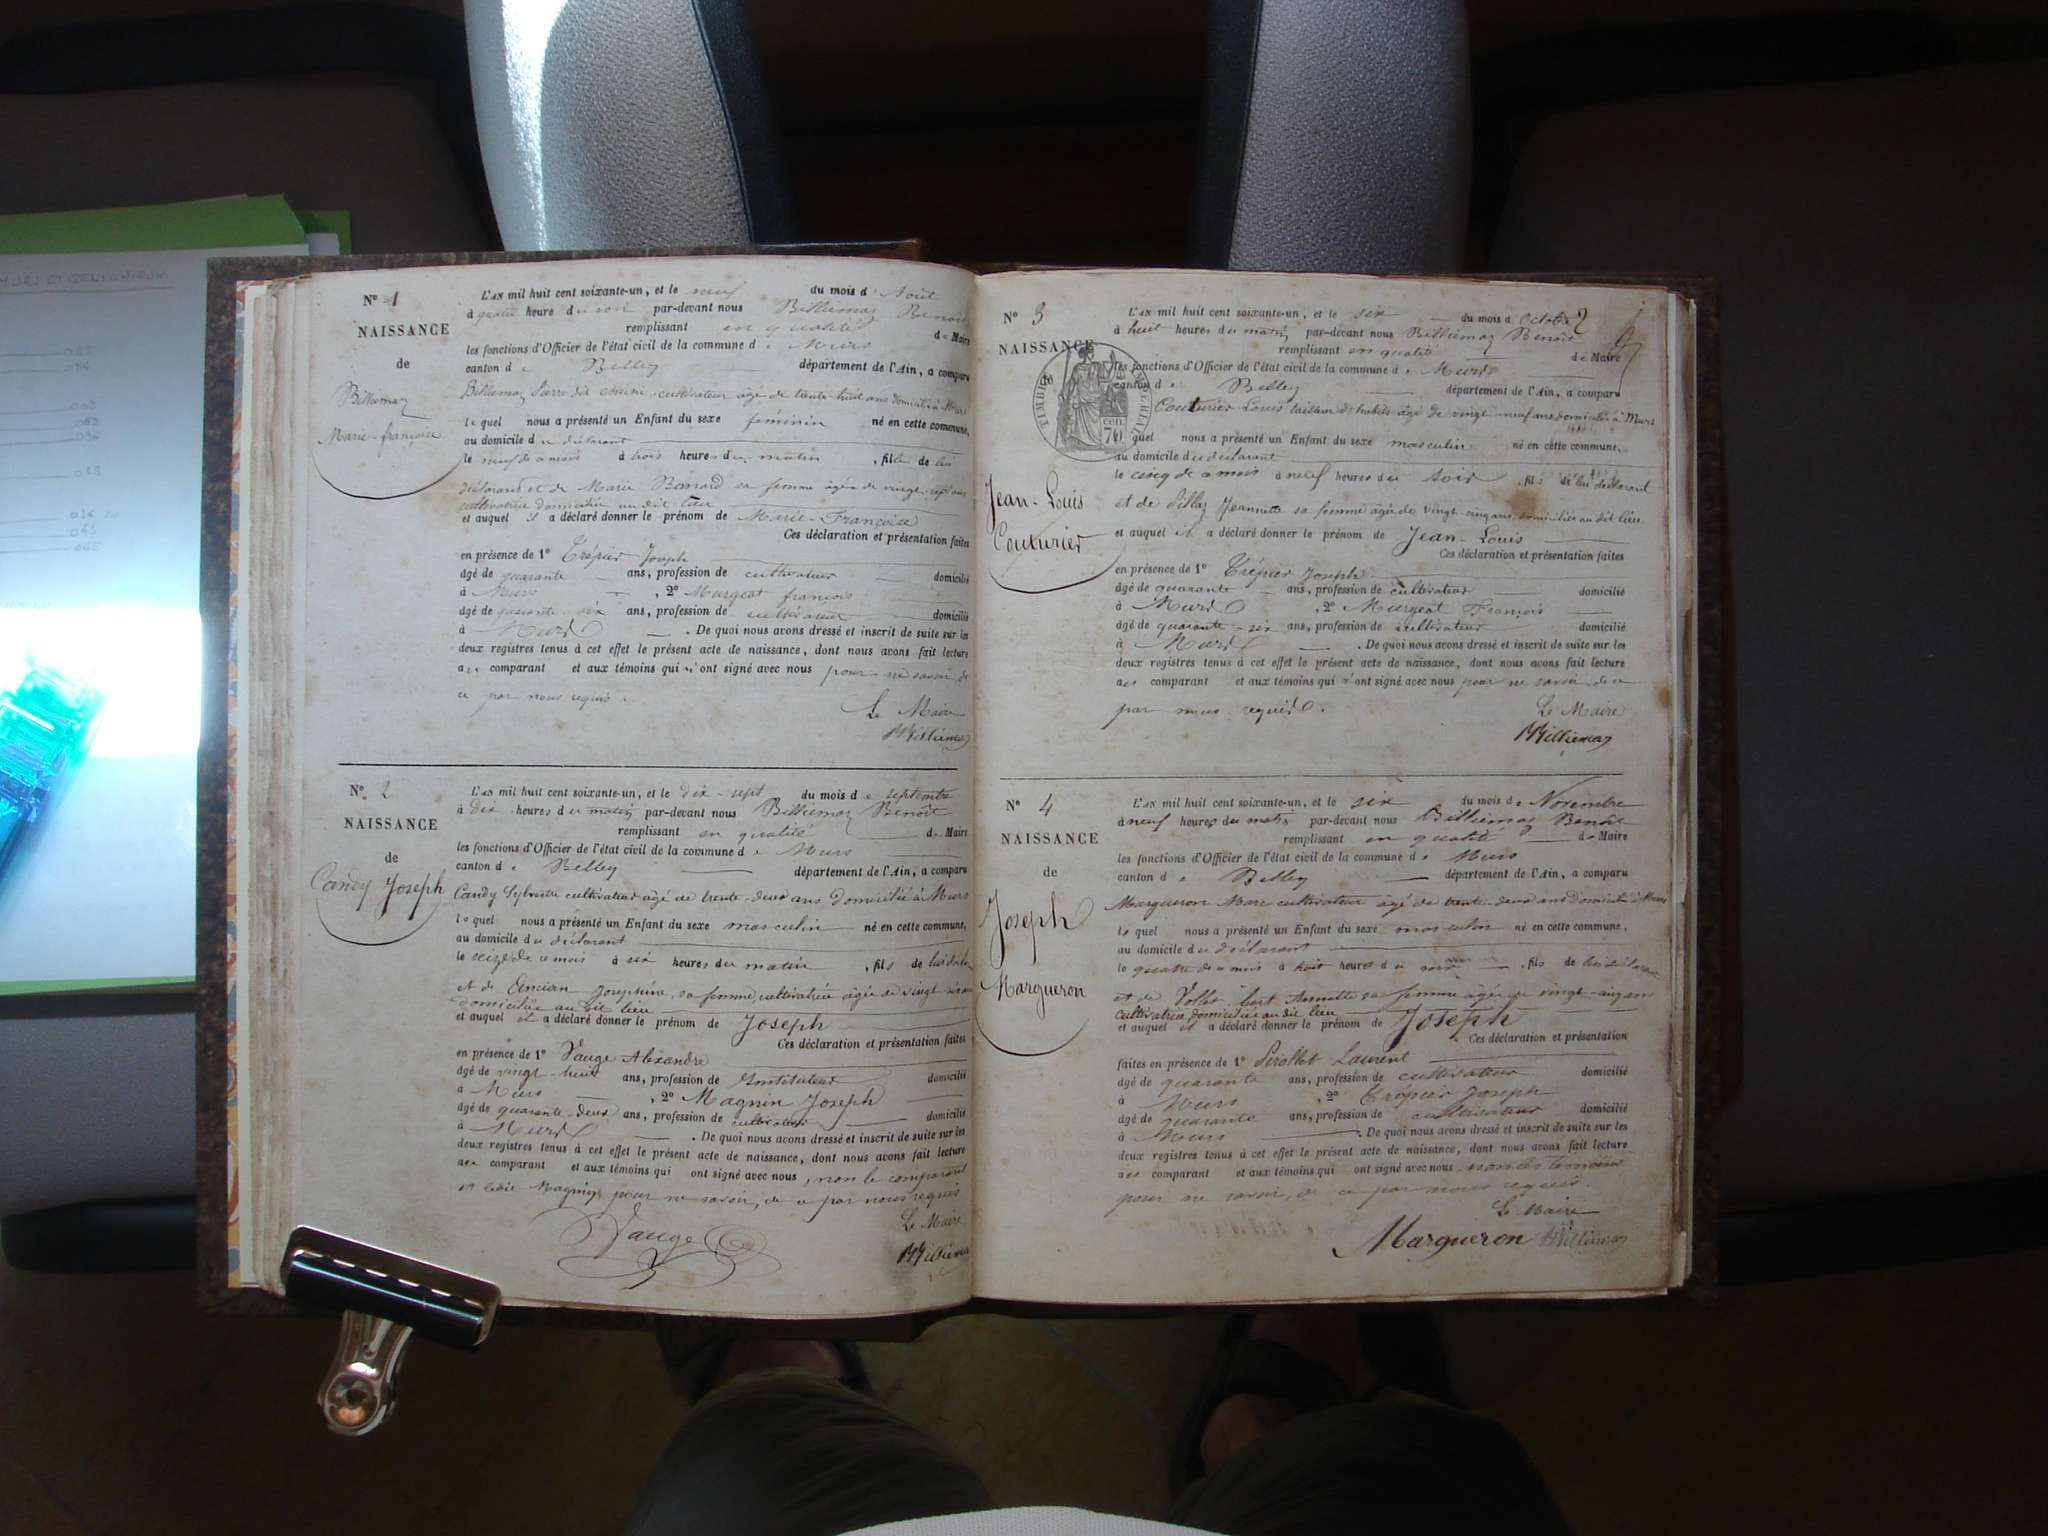 Nº 1
NAISSANCE
de
Billiemaz
Marie-françoise
L'AN mil huit cent soixante-un, et le neuf du mois d' Août
à quatre heure du soir par-devant nous Billiemaz Benoît
remplissant en qualité de Maire
les fonctions d'Officier de l'état civil de la commune de Murs
canton de Belley département de l'Ain, a comparu
Billiemaz Pierre dit cultivateur âgé de trente-huit ans domicilié à Murs
lequel nous a présenté un Enfant du sexe féminin né en cette commune,
au domicile du déclarant
le neuf de ce mois à trois heures du matin, fille de lui
déclarant et de Marie sa femme âgée de vingt-sept ans
cultivatrice domiciliée au dit lieu
et auquel il a déclaré donner le prénom de Marie-Françoise
Ces déclaration et présentation faites
en présence de 1º Trépier Joseph
âgé de quarante ans, profession de cultivateur domicilié
à Murs, 2º Murgeat françois
âgé de quarante-six ans, profession de cultivateur domicilié
à Murs. De quoi nous avons dressé et inscrit de suite sur les
deux registres tenus à cet effet le présent acte de naissance, dont nous avons fait lecture
au comparant et aux témoins qui n'ont signé avec nous pour ne savoir, de
ce par nous requis.
Le Maire
Billiemaz
Nº 2
NAISSANCE
de
Candy Joseph
L'AN mil huit cent soixante-un, et le dix-sept du mois de septembre
à dix heures du matin par-devant nous Billiemaz Benoît
remplissant en qualité de Maire
les fonctions d'Officier de l'état civil de la commune de Murs
canton de Belley département de l'Ain, a comparu
Candy Sylvestre cultivateur âgé de trente-deux ans domicilié à Murs
lequel nous a présenté un Enfant du sexe masculin né en cette commune,
au domicile du déclarant
le seize de ce mois à six heures du matin, fils de lui
et de Ancian Josephine, sa femme, cultivatrice âgée de vingt
domiciliée au dit lieu
et auquel il a déclaré donner le prénom de Joseph
Ces déclaration et présentation faites
en présence de 1º Vauge Alexandre
âgé de vingt-huit ans, profession de Instituteur domicilié
à Murs, 2º Magnin Joseph
âgé de quarante-deux ans, profession de cultivateur domicilié
à Murs. De quoi nous avons dressé et inscrit de suite sur les
deux registres tenus à cet effet le présent acte de naissance, dont nous avons fait lecture
au comparant et aux témoins qui ont signé avec nous, non le comparant
Magnin pour ne savoir, de ce par nous requis
Le Maire
Vauge
Billiemaz
2
Nº 3
NAISSANCE
Jean-Louis
Couturier
TIMBRE IMPÉRIAL
70 cen.
L'AN mil huit cent soixante-un, et le six du mois d Octobre
à huit heures du matin par-devant nous Billiemaz Benoît
remplissant en qualité de Maire
les fonctions d'Officier de l'état civil de la commune de Murs
canton de Belley département de l'Ain, a comparu
Couturier Louis tailleur d'habits âgé de vingt-neuf ans domicilié à Murs
quel nous a présenté un Enfant du sexe masculin né en cette commune,
au domicile du déclarant
le cinq de ce mois à neuf heures du soir, fils de lui déclarant
et de Jeannette sa femme âgée de vingt-cinq ans domiciliée au dit lieu
et auquel il a déclaré donner le prénom de Jean-Louis
Ces déclaration et présentation faites
en présence de 1º Trépier Joseph
âgé de quarante ans, profession de cultivateur domicilié
à Murs, 2º Murgeat François
âgé de quarante-six ans, profession de cultivateur domicilié
à Murs. De quoi nous avons dressé et inscrit de suite sur les
deux registres tenus à cet effet le présent acte de naissance, dont nous avons fait lecture
aux comparant et aux témoins qui n'ont signé avec nous pour ne savoir, de ce
par nous requis.
Le Maire
Billiemaz
Nº 4
NAISSANCE
de
Joseph
Margueron
L'AN mil huit cent soixante-un, et le six du mois de Novembre
à neuf heures du matin par-devant nous Billiemaz Benoît
remplissant en qualité de Maire
les fonctions d'Officier de l'état civil de la commune de Murs
canton de Belley département de l'Ain, a comparu
Margueron Marc cultivateur âgé de trente-deux ans domicilié à Murs
lequel nous a présenté un Enfant du sexe masculin né en cette commune,
au domicile du déclarant
le quatre de ce mois à huit heures du soir, fils de lui déclarant
et de Annette sa femme âgée de vingt-cinq ans
cultivatrice domiciliée au dit lieu
et auquel il a déclaré donner le prénom de Joseph
Ces déclaration et présentation
faites en présence de 1º Pirollet Laurent
âgé de quarante ans, profession de cultivateur domicilié
à Murs, 2º Trépier Joseph
âgé de quarante ans, profession de cultivateur domicilié
à Murs. De quoi nous avons dressé et inscrit de suite sur les
deux registres tenus à cet effet le présent acte de naissance, dont nous avons fait lecture
aux comparant et aux témoins qui ont signé avec nous non les témoins
pour ne savoir, de ce par nous requis.
Le Maire
Margueron Billiemaz